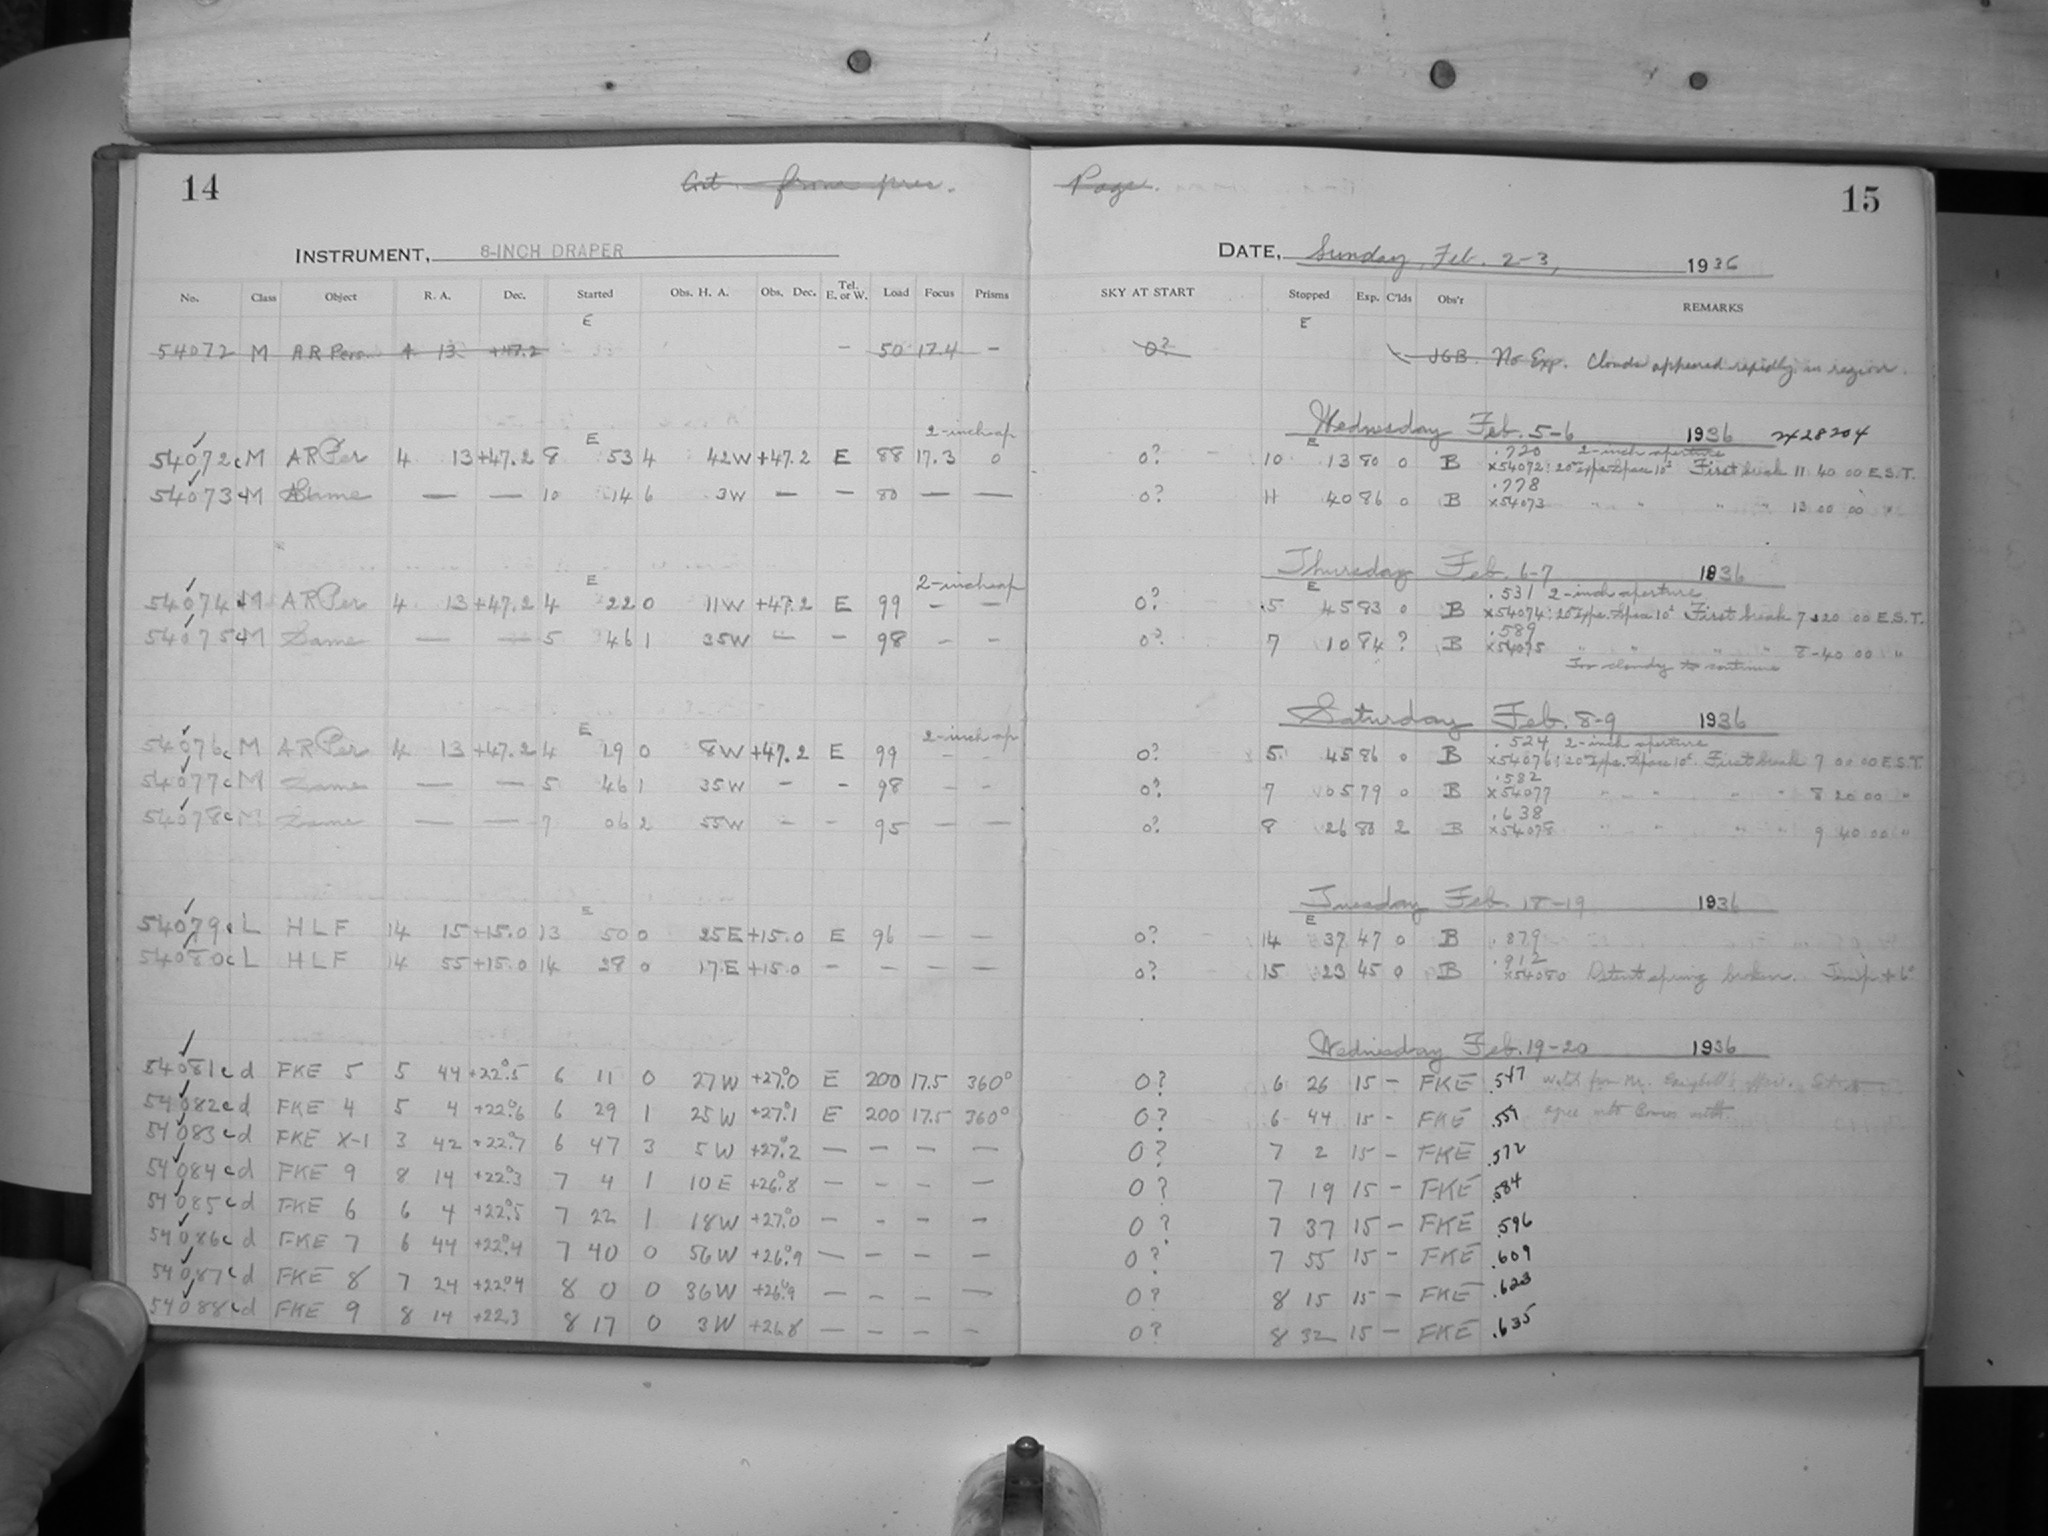 14
15
INSTRUMENT, 8-INCH DRAPER
DATE, Sunday, Feb. 2-3, 1936
No. Class Object R. A. Dec. Started Obs. H. A. Obs. Dec. Tel. E. or W. Load Focus Prisms SKY AT START Stopped Exp. C'lds Obs'r REMARKS
E E
54072 M AR Pers. 4 13 +47.2 — 50 17.4 — 0? JGB. No Exp. Clouds appeared rapidly in region.
Wednesday Feb. 5-6 1936 2428204
E 2-inch ap E .720 2-inch aperture
54072c M AR Per 4 13 +47.2 8 53 4 42W +47.2 E 88 17.3 0 0? 10 13 80 0 B x54072: First break 11 40 00 E.S.T.
.778
54073 M Same — — 10 14 6 3W — — 80 — — 0? 11 40 86 0 B x54073 " " " " 13 00 00 "
Thursday Feb. 6-7 1936
E 2-inch ap E .531 2-inch aperture
54074 M AR Per 4 13 +47.2 4 22 0 11W +47.2 E 99 – — 0? 5 45 83 0 B x54074: First break 7 20 00 E.S.T.
.589
54075 M Same — — 5 46 1 35W — – 98 – – 0? 7 10 84 ? B x54075 " " " " 8-40 00 "
Too cloudy to continue
Saturday Feb. 8-9 1936
E 2-inch ap .524 2-inch aperture
54076c M AR Per 4 13 +47.2 4 19 0 8W +47.2 E 99 – – 0? 5 45 86 0 B x54076: First break 7 00 00 E.S.T.
.582
54077c M Same — — 5 46 1 35W – – 98 – – 0? 7 05 79 0 B x54077 " " " " 8 20 00 "
.638
54078c M Same — — 7 06 2 55W – – 95 — — 0? 8 26 80 2 B x54078 " " " " 9 40 00 "
Tuesday Feb. 18-19 1936
E E
54079c L HLF 14 15 +15.0 13 50 0 25E +15.0 E 96 — — 0? 14 37 47 0 B .879
.912
54080c L HLF 14 55 +15.0 14 28 0 17E +15.0 – — — — 0? 15 23 45 0 B x54080 Detent spring broken. Temp + 6°
Wednesday Feb. 19-20 1936
54081c d FKE 5 5 44 +22°.5 6 11 0 27W +27°.0 E 200 17.5 360° 0? 6 26 15 – FKE .547 Watch from Mr.
54082c d FKE 4 5 4 +22°.6 6 29 1 25W +27°.1 E 200 17.5 360° 0? 6 44 15 – FKE agree
54083c d FKE X-1 3 42 +22°.7 6 47 3 5W +27°.2 — — — — 0? 7 2 15 – FKE .572
54084c d FKE 9 8 14 +22°.3 7 4 1 10E +26°.8 — — — — 0? 7 19 15 – FKE .584
54085c d FKE 6 6 4 +22°.5 7 22 1 18W +27°.0 — – — — 0? 7 37 15 – FKE .596
54086c d FKE 7 6 44 +22°.4 7 40 0 56W +26°.9 — — — — 0? 7 55 15 – FKE .609
54087c d FKE 8 7 24 +22°.4 8 0 0 36W +26°.9 — — — — 0? 8 15 15 – FKE .623
54088c d FKE 9 8 14 +22.3 8 17 0 3W +26.8 — — — — 0? 8 32 15 – FKE .635